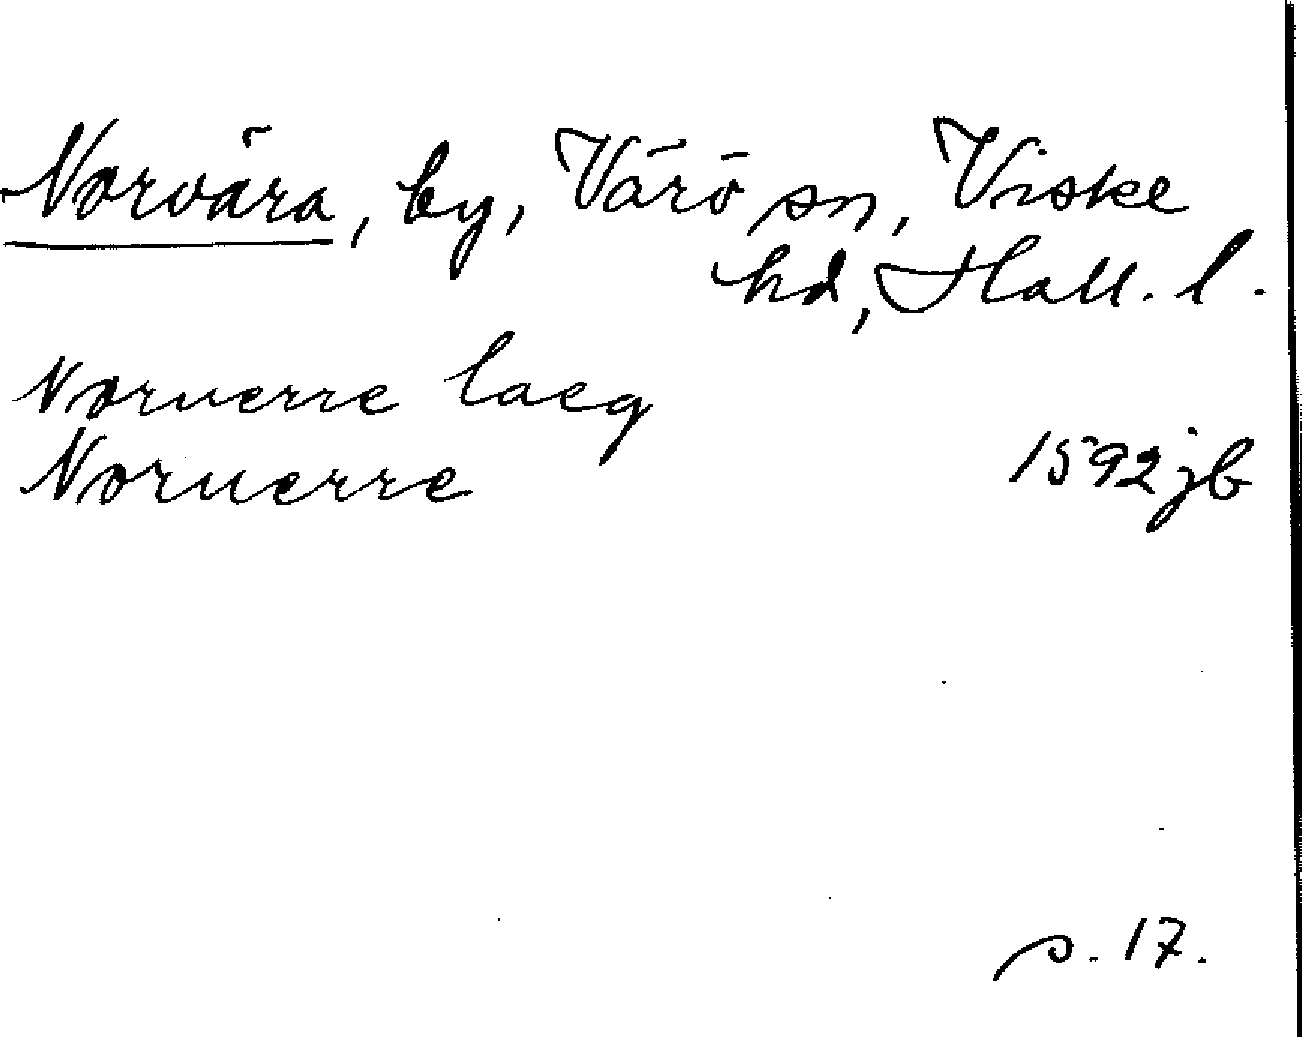 Norvära, by, Värö sn, Viske
hd, Hall. l.
Noruerre laeg
Noruerre 1592 jb
s. 17.